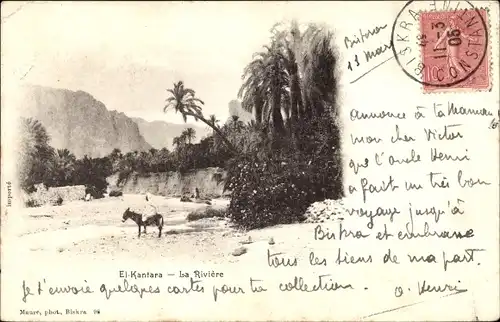 Biskra
13 mars
BISKRA
CONSTANTINE
11-3
06
10
Importé
annonce à ta maman
mon cher Victor
que l'oncle Henri
a fait un très bon
voyage jusqu'à
Biskra et embrasse
tous les siens de ma part.
O. Henri
El-Kantara — La Rivière
Je t'envoie quelques cartes pour ta collection.
Maure, phot., Biskra